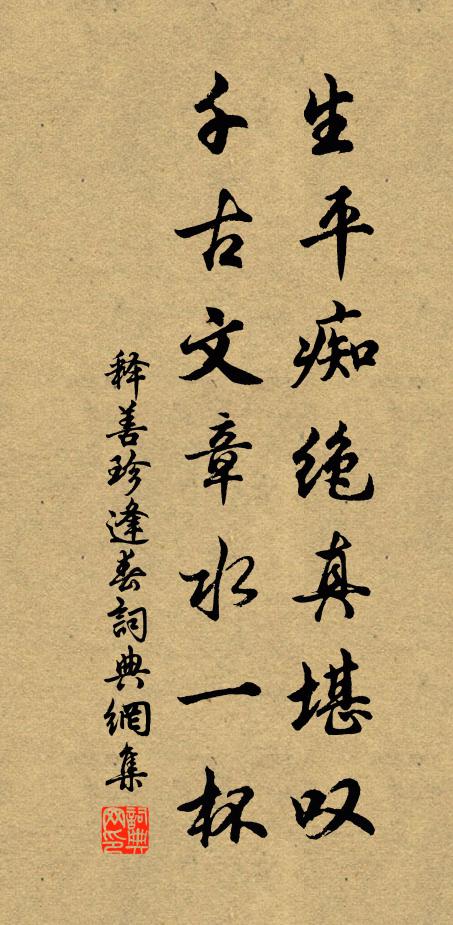 生平痴绝真堪叹
千古文章水一杯
释善珍逢春詞典網集
詞典网印